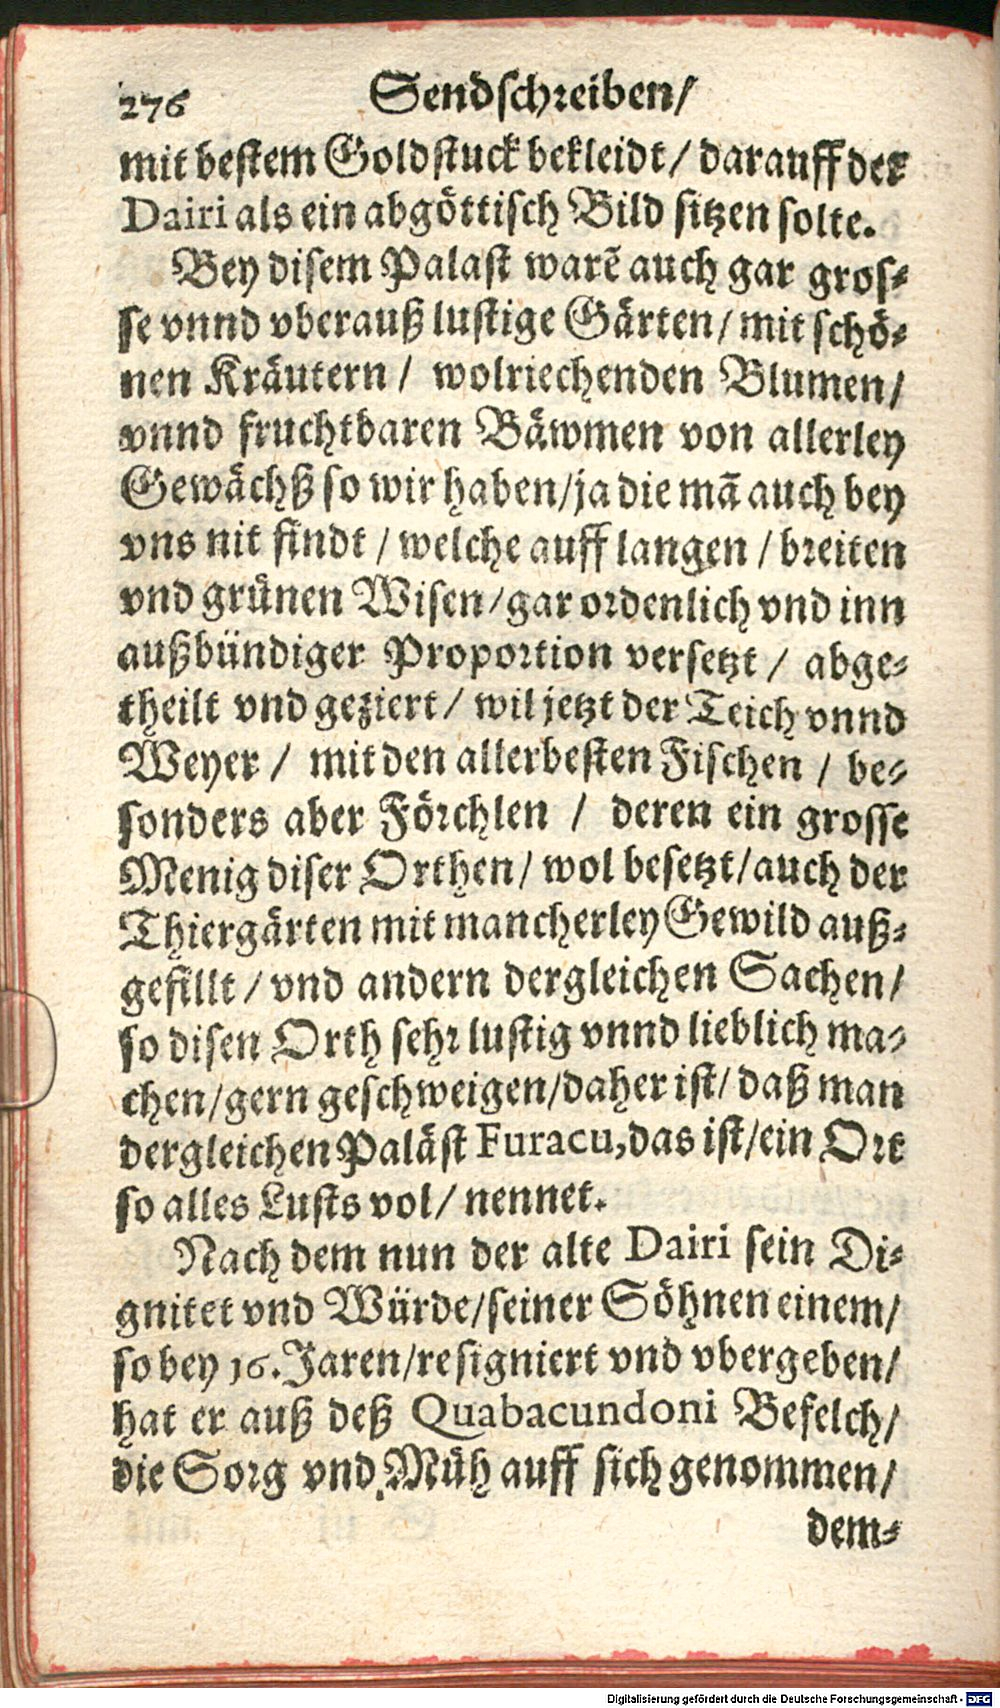 276 Sendschreiben/
mit bestem Goldstuck bekleidt/ darauff der
Dairi als ein abgöttisch Bild sitzen solte.
Bey disem Palast warẽ auch gar gros-
se vnnd vberauß lustige Gärten/ mit schö-
nen Kräutern/ wolriechenden Blumen/
vnnd fruchtbaren Bäwmen von allerley
Gewächß so wir haben/ja die mã auch bey
vns nit findt/ welche auff langen/ breiten
vnd grünen Wisen/gar ordenlich vnd inn
außbündiger Proportion versetzt/ abge-
theilt vnd geziert/ wil jetzt der Teich vnnd
Weyer/ mit den allerbesten Fischen/ be-
sonders aber Förchlen/ deren ein grosse
Menig diser Orthen/ wol besetzt/auch der
Thiergärten mit mancherley Gewild auß-
gefillt/ vnd andern dergleichen Sachen/
so disen Orth sehr lustig vnnd lieblich ma-
chen/gern geschweigen/daher ist/ daß man
dergleichen Paläst Furacu, das ist/ein Ort
so alles Lusts vol/ nennet.
Nach dem nun der alte Dairi sein Di-
gnitet vnd Würde/seiner Söhnen einem/
so bey 16. Jaren/resigniert vnd vbergeben/
hat er auß deß Quabacundoni Befelch/
die Sorg vnd Müh auff sich genommen/
dem-
Digitalisierung gefördert durch die Deutsche Forschungsgemeinschaft - DFG